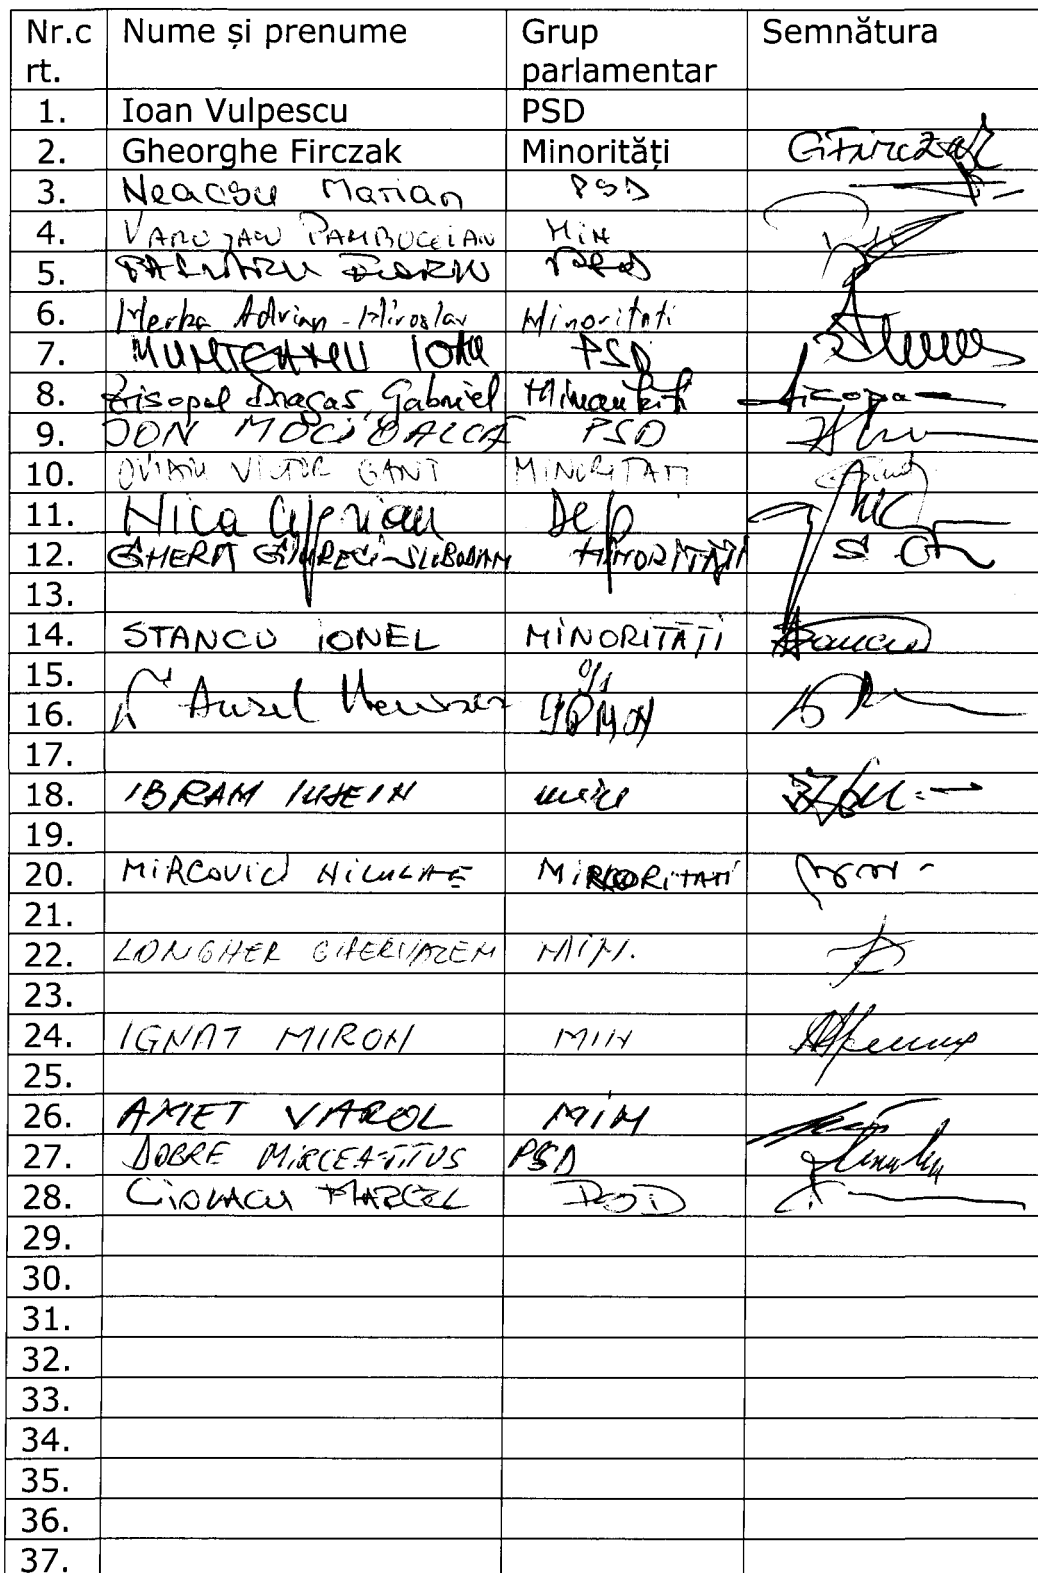 Nr.c Nume și prenume Grup Semnătura
rt. parlamentar
1. Ioan Vulpescu PSD
2. Gheorghe Firczak Minorități GFirczak
3. Neacsu Marian PSD
4. VARUJAN PAMBUCCIAN MIN
5. PSD
6. Merka Adrian-Miroslav Minoritati
7. MUNTEANU IOAN PSD
8. Zisopol Dragas Gabriel Minoritati
9. ION MOCIOALCA PSD
10. OVIDIU VICTOR GANT MINORITATI
11. Nica Ciprian
12. GHERA GIURECI-SLOBODAN MINORITĂȚI
13.
14. STANCU IONEL MINORITĂȚI
15.
16. Aurel
17.
18. IBRAM IUSEIN
19.
20. MIRCOVICI NICULAE MINORITATI
21.
22. LONGHER GHERVAZEN MIN.
23.
24. IGNAT MIRON MIN
25.
26. AMET VAROL MIN
27. DOBRE MIRCEA-TITUS PSD
28. CIOLACU MARCEL PSD
29.
30.
31.
32.
33.
34.
35.
36.
37.